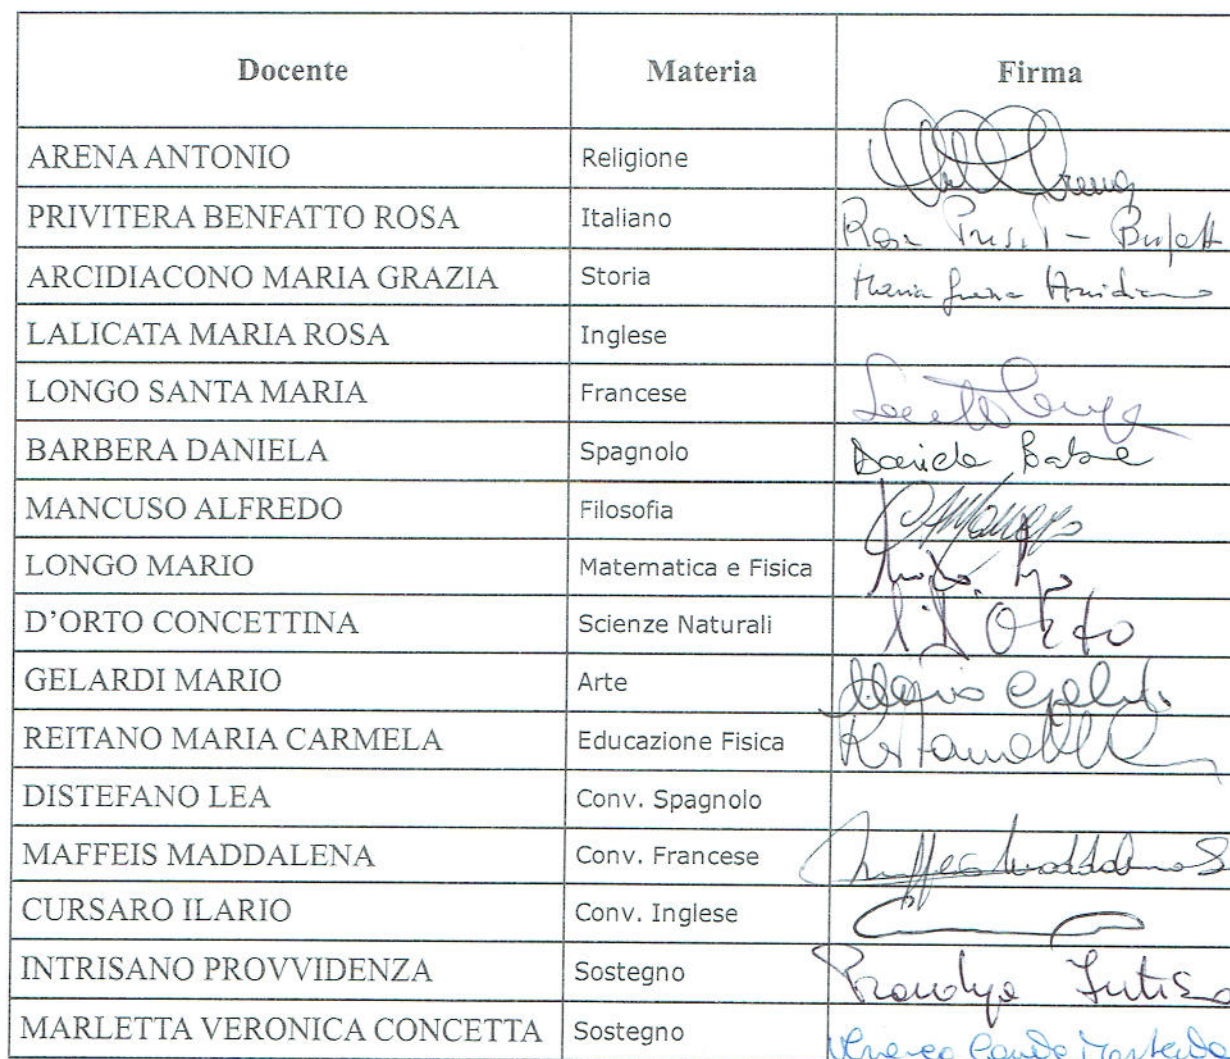 Docente Materia Firma
ARENA ANTONIO Religione
PRIVITERA BENFATTO ROSA Italiano Rosa
ARCIDIACONO MARIA GRAZIA Storia Maria Grazia
LALICATA MARIA ROSA Inglese
LONGO SANTA MARIA Francese
BARBERA DANIELA Spagnolo Daniela
MANCUSO ALFREDO Filosofia
LONGO MARIO Matematica e Fisica
D'ORTO CONCETTINA Scienze Naturali D'Orto
GELARDI MARIO Arte Mario Gelardi
REITANO MARIA CARMELA Educazione Fisica
DISTEFANO LEA Conv. Spagnolo
MAFFEIS MADDALENA Conv. Francese Maffeis Maddalena
CURSARO ILARIO Conv. Inglese
INTRISANO PROVVIDENZA Sostegno
MARLETTA VERONICA CONCETTA Sostegno